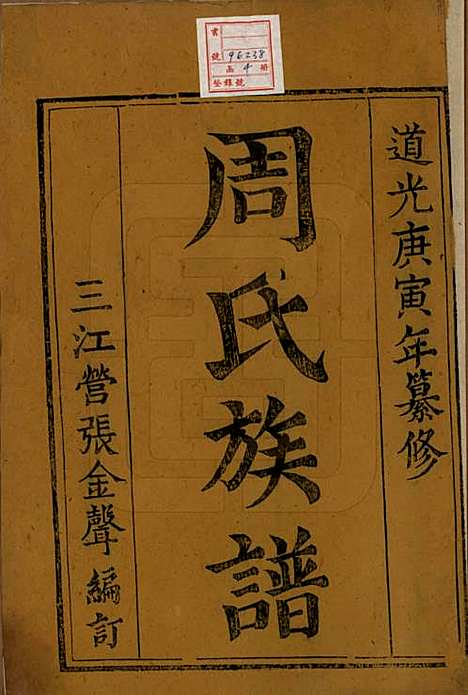 書
號 96238
函 4 冊
登錄號
道光庚寅年纂修
周氏族譜
三江營張金聲編訂